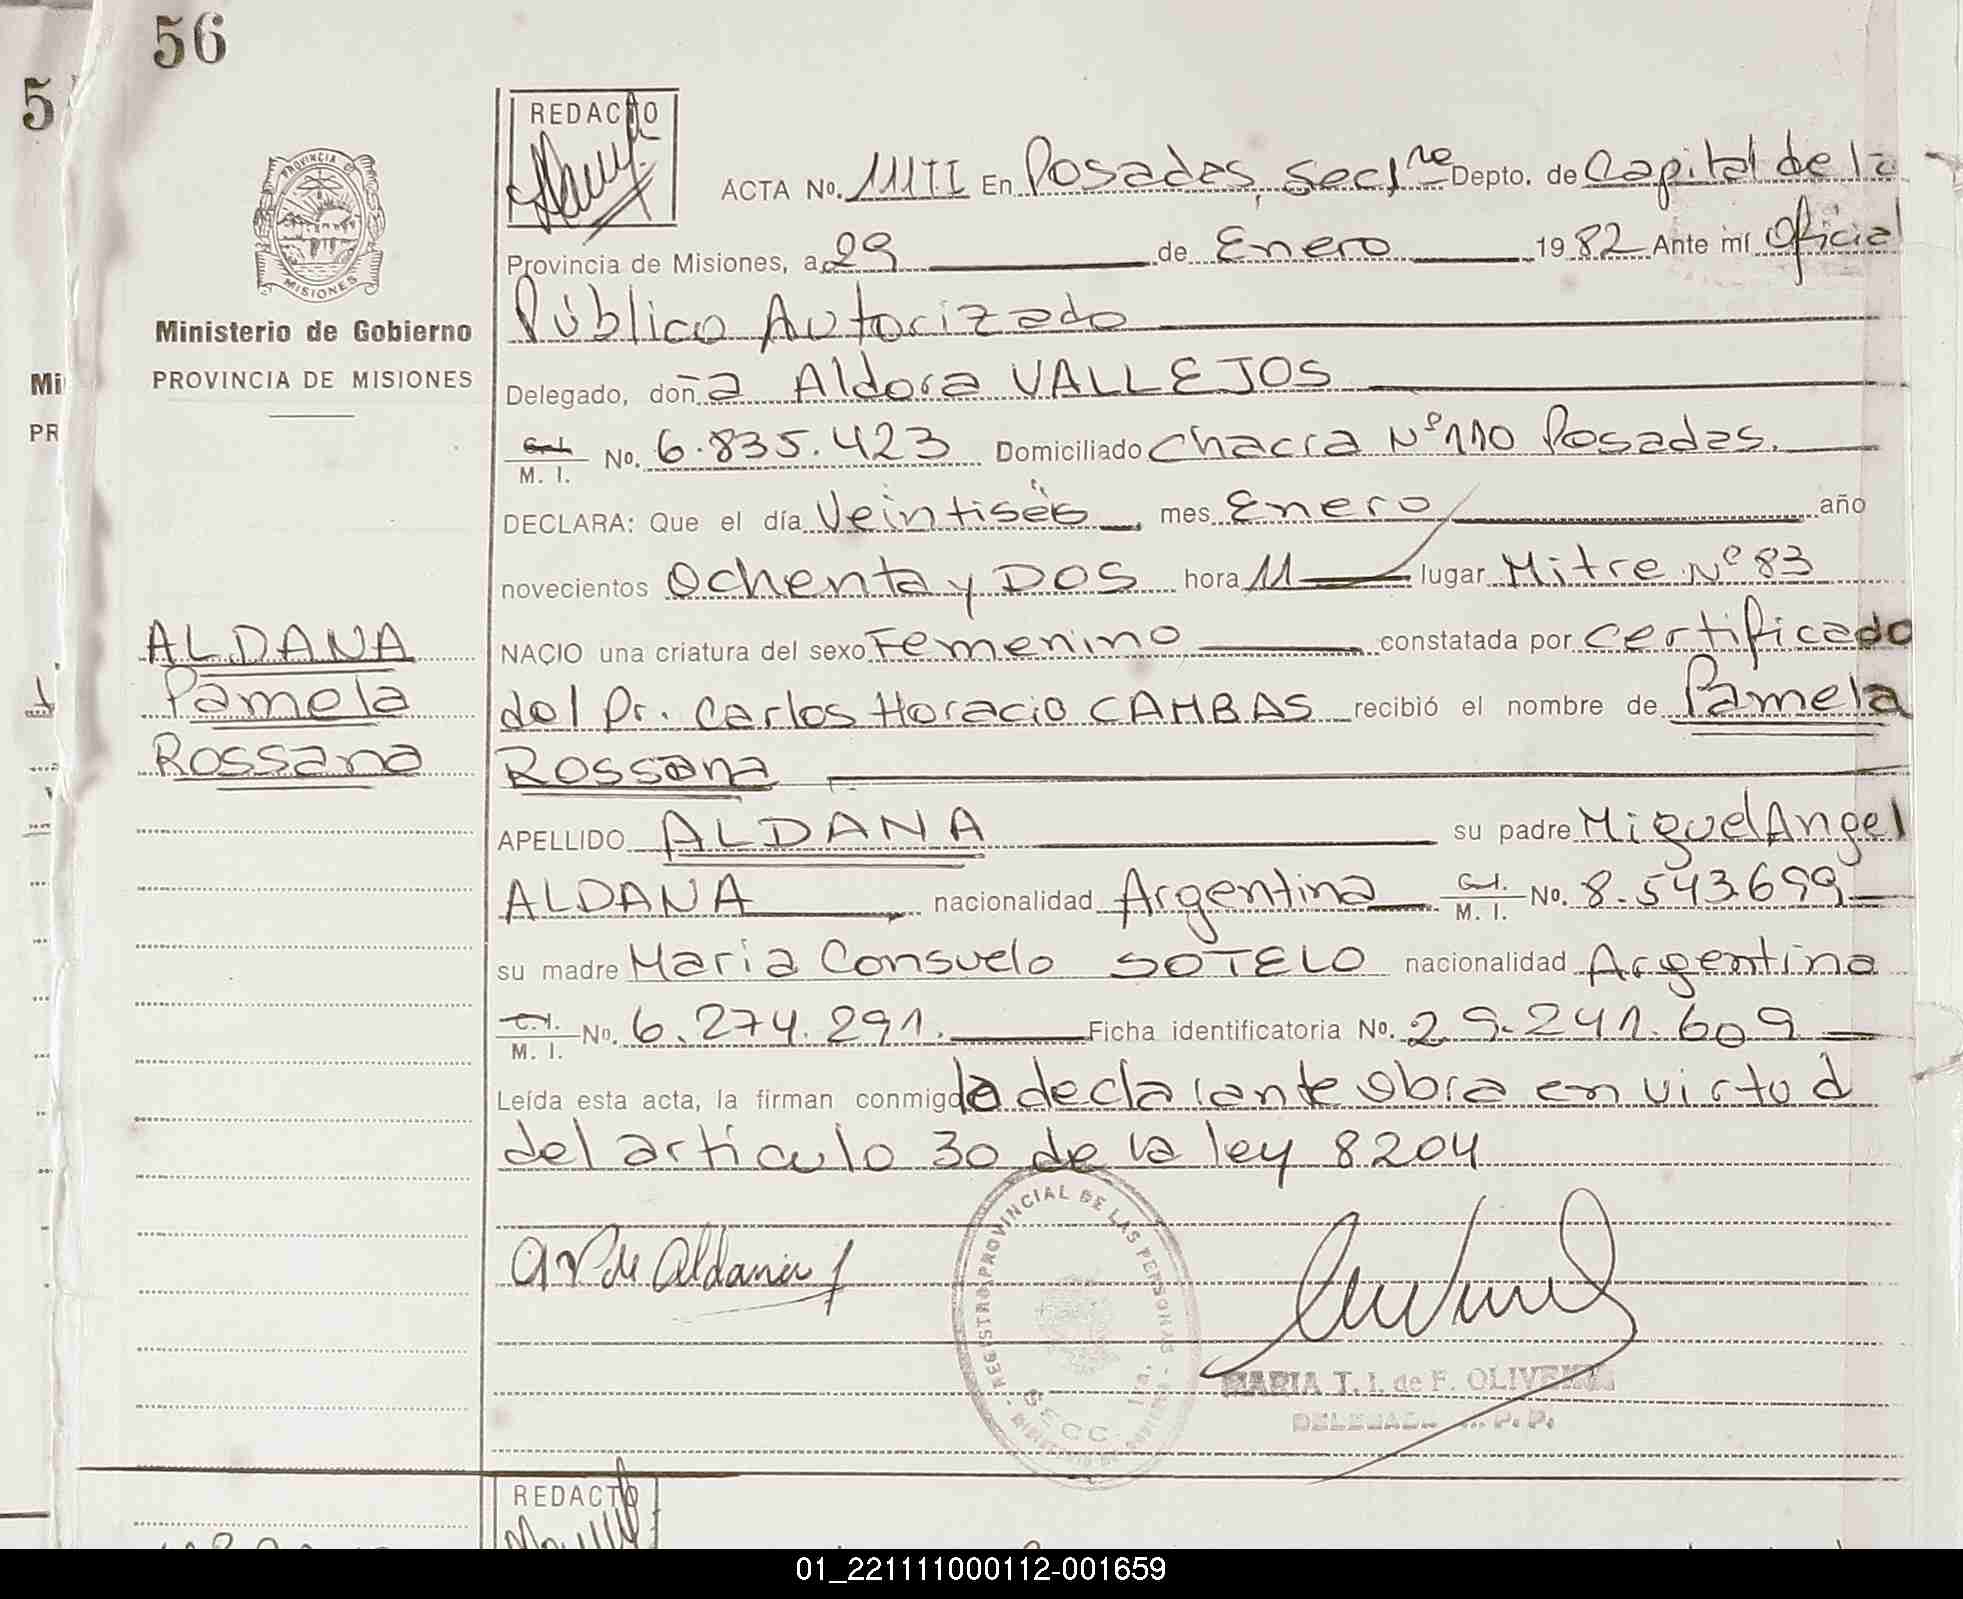 56
5
REDACTO
ACTA No. 111TI En Posadas, sec 1ra Depto. de Capital de la
Provincia de Misiones, a 29 de Enero 1982 Ante mí Oficial
Público Autorizado
PROVINCIA DE
MISIONES
Ministerio de Gobierno
PROVINCIA DE MISIONES
Mi
PR
Delegado, doña Aldora VALLEJOS
C.I. M. I. No. 6.835.423 Domiciliado Chacra Nº 110 Posadas.
DECLARA: Que el día Veintiséis, mes Enero año
novecientos Ochenta y DOS hora 11 lugar Mitre Nº 83
NACIO una criatura del sexo Femenino constatada por certificado
del Dr. Carlos Horacio CAMBAS recibió el nombre de Pamela
Rossana
ALDANA
Pamela
Rossana
APELLIDO ALDANA su padre Miguel Angel
ALDANA nacionalidad Argentina C.I. M. I. No. 8.543.699
su madre Maria Consuelo SOTELO nacionalidad Argentina
C.I. M. I. No. 6.274.291. Ficha identificatoria No. 29.241.609
Leída esta acta, la firman conmigo la declarante obra en virtud
del artículo 30 de la ley 8204
de Aldana
REGISTRO PROVINCIAL DE LAS PERSONAS
SECC. 1ra.
MARIA T. I. de F. OLIVEIRA
DELEGADA R. P. P.
REDACTO
01_221111000112-001659